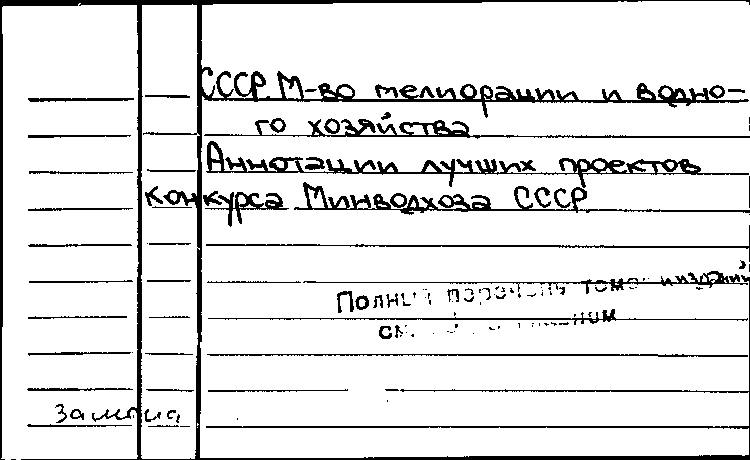 СССР. М-во мелиорации и водно-
го хозяйства.
Аннотации лучших проектов
конкурса Минводхоза СССР.
Полный перечень томов и изданий
см.